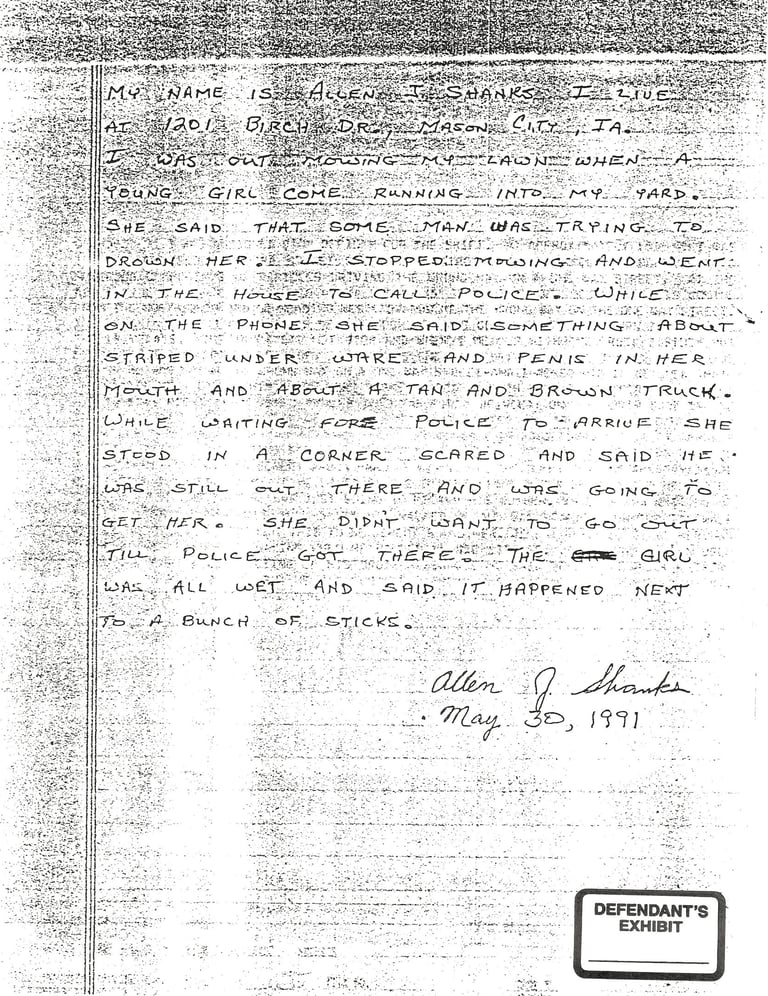 MY NAME IS ALLEN J SHANKS I LIVE
AT 1201 BIRCH DR., MASON CITY, IA.
I WAS OUT MOWING MY LAWN WHEN A
YOUNG GIRL COME RUNNING INTO MY YARD.
SHE SAID THAT SOME MAN WAS TRYING TO
DROWN HER. I STOPPED MOWING AND WENT
IN THE HOUSE TO CALL POLICE. WHILE
ON THE PHONE SHE SAID SOMETHING ABOUT
STRIPED UNDER WARE AND PENIS IN HER
MOUTH AND ABOUT A TAN AND BROWN TRUCK.
WHILE WAITING FORE POLICE TO ARRIVE SHE
STOOD IN A CORNER SCARED AND SAID HE
WAS STILL OUT THERE AND WAS GOING TO
GET HER. SHE DIDNT WANT TO GO OUT
TILL POLICE GOT THERE. THE GIRL
WAS ALL WET AND SAID IT HAPPENED NEXT
TO A BUNCH OF STICKS.
Allen J. Shanks
May 30, 1991
DEFENDANT'S
EXHIBIT